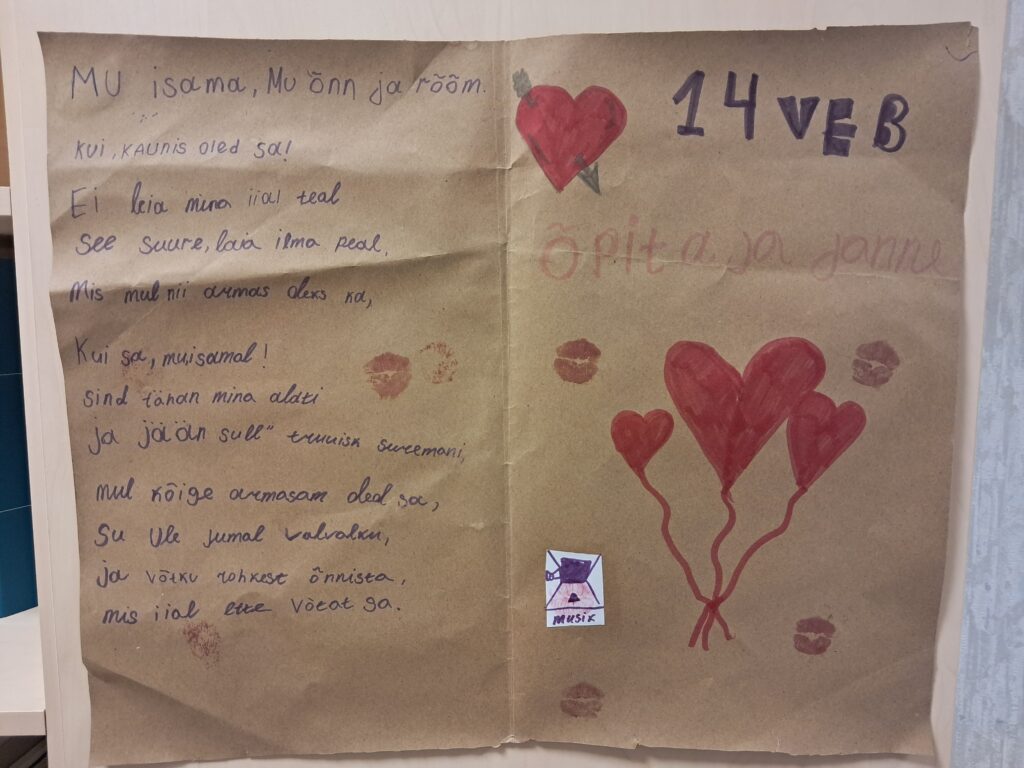 MU isama, MU õnn ja rõõm.
KUI, KAUNIS oled sa!
Ei leia mina iial teal
See suure, laia ilma peal,
Mis mul nii armas oleks ka,
Kui sa, mu isamal!
sind tänan mina aldti
ja jään sull" truuisk suremani,
mul kõige armasam oled sa,
Su Üle jumal valvaku,
ja võtku rohkest õnnista,
mis iial ette võtat sa.
14 VEB
õpita ja janne
musix